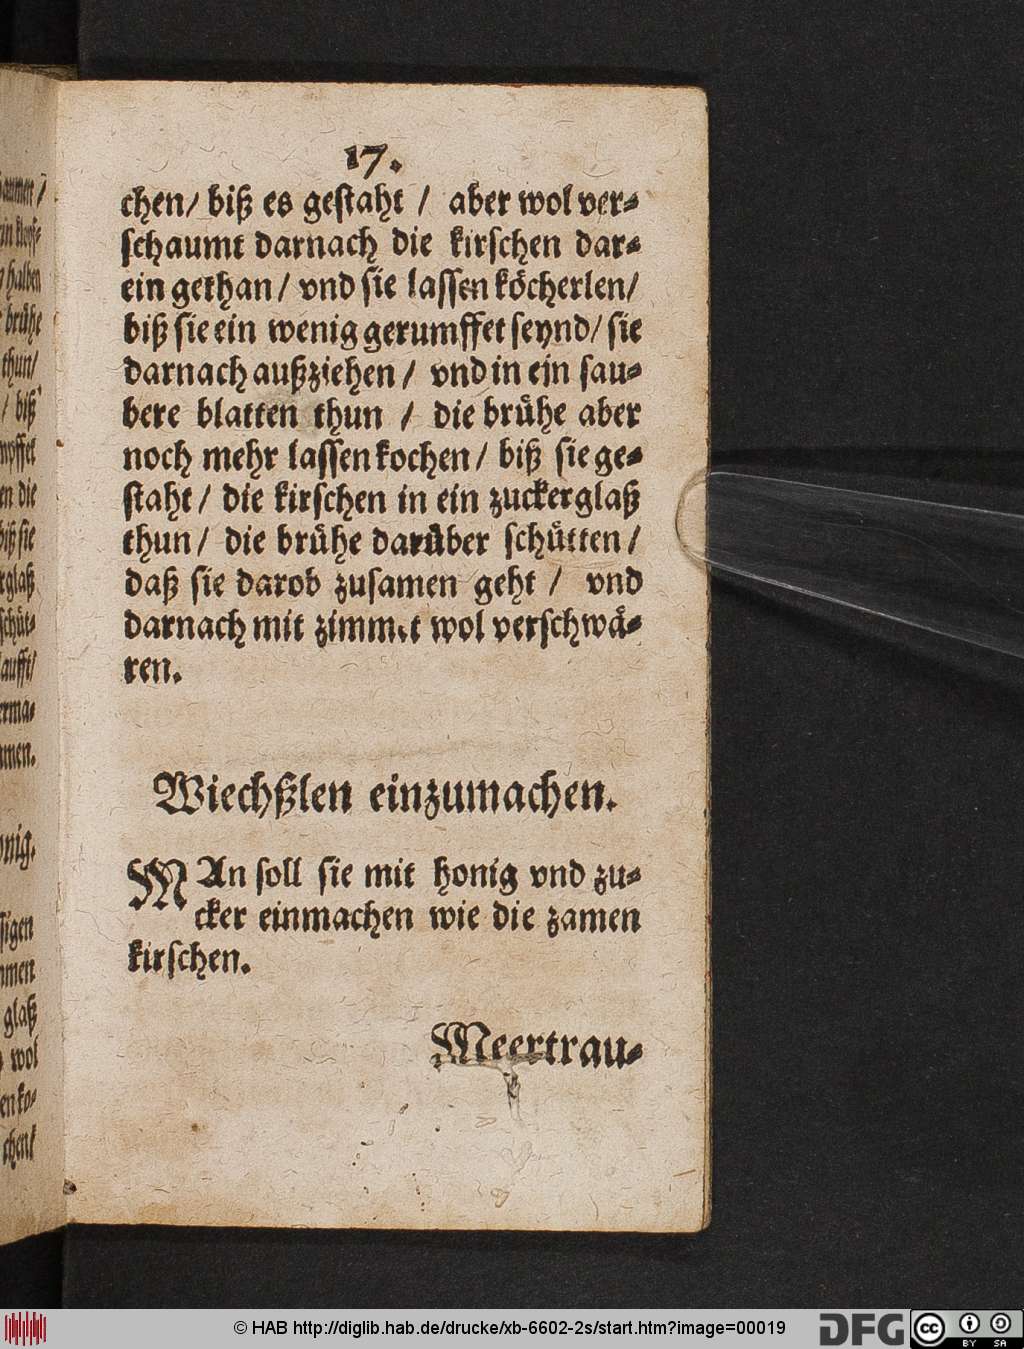 17.
chen/ biß es gestaht / aber wol ver-
schaumt darnach die kirschen dar-
ein gethan/ vnd sie lassen köcherlen/
biß sie ein wenig gerumffet seynd/ sie
darnach außziehen/ vnd in ein sau-
bere blatten thun / die brühe aber
noch mehr lassen kochen/ biß sie ge-
staht/ die kirschen in ein zuckerglaß
thun/ die brühe darüber schütten/
daß sie darob zusamen geht / vnd
darnach mit zimmet wol verschwä-
ren.
Wiechßlen einzumachen.
MAn soll sie mit honig vnd zu-
cker einmachen wie die zamen
kirschen.
Meertrau-
halben
brühe
thun/
/ biß
en die
biß sie
glaß
wol
chen/
© HAB http://diglib.hab.de/drucke/xb-6602-2s/start.htm?image=00019
DFG
cc BY SA